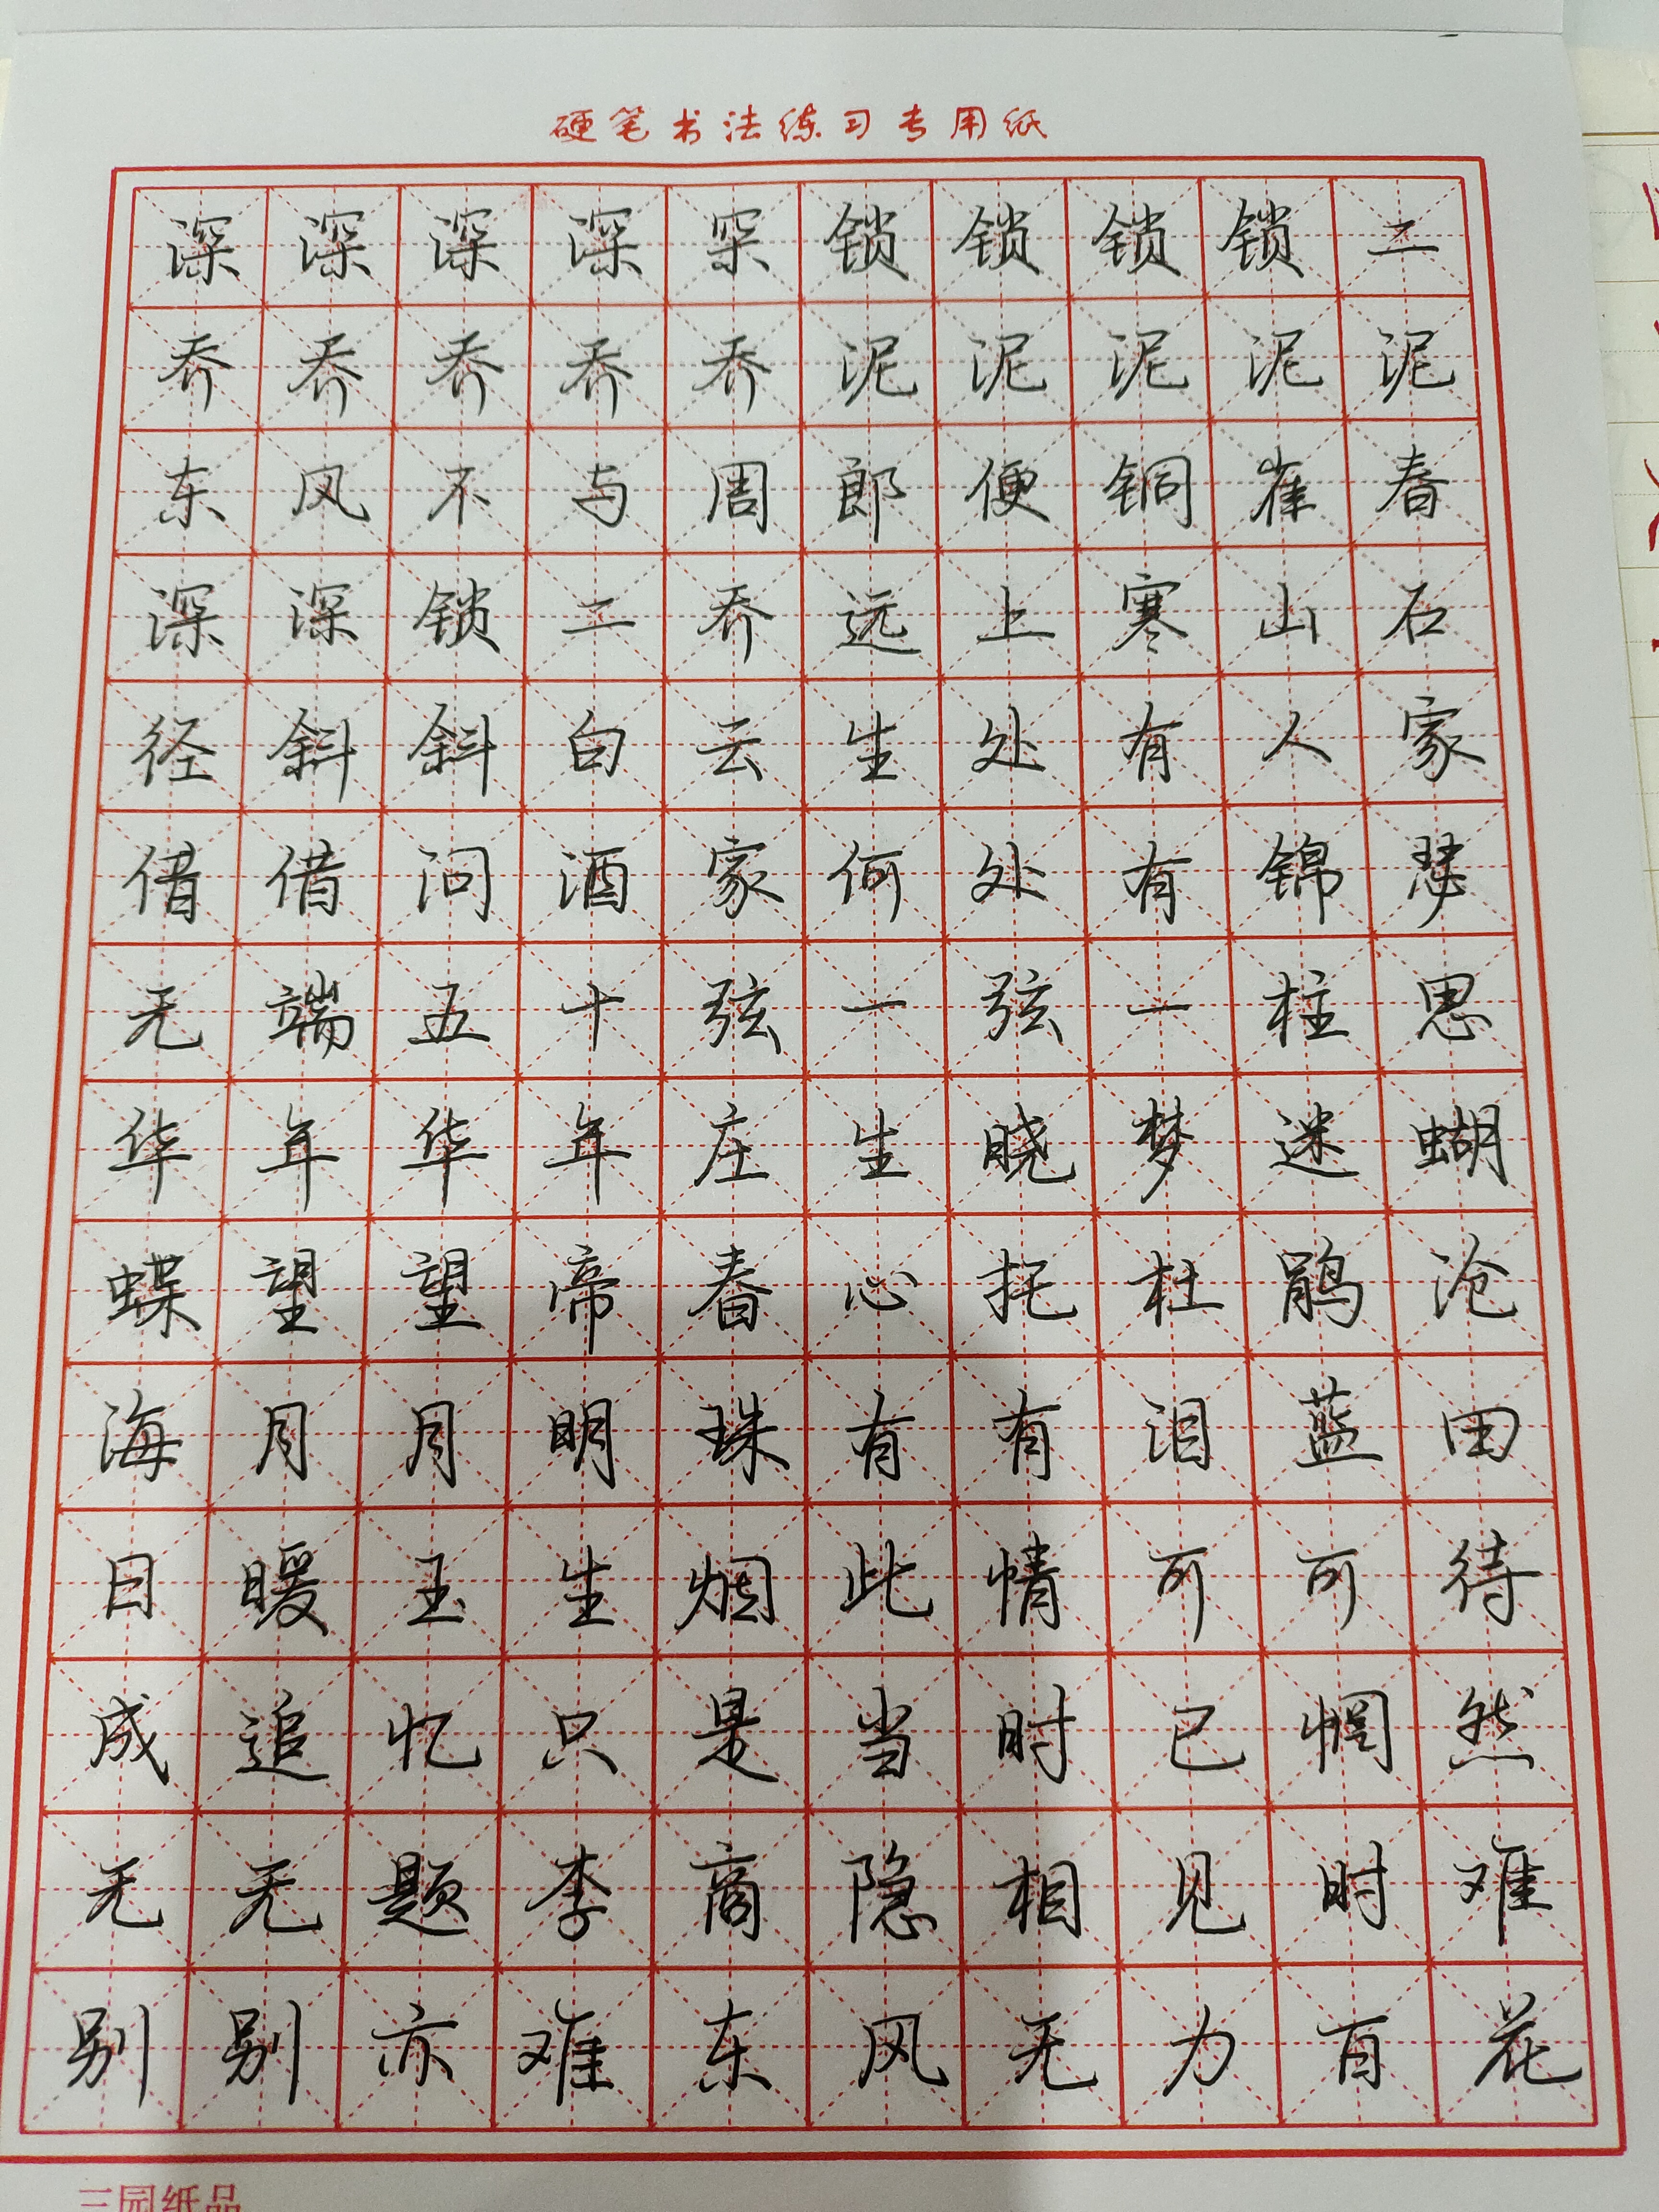 硬笔书法练习专用纸
深深深深罙锁锁锁锁二
乔乔乔乔乔泥泥泥泥泥
东风不与周郎便铜雀春
深深锁二乔远上寒山石
径斜斜白云生处有人家
借借问酒家何处有锦瑟
无端五十弦一弦一柱思
华年华年庄生晓梦迷蝴
蝶望望帝春心托杜鹃沧
海月月明珠有有泪蓝田
日暖玉生烟此情可可待
成追忆只是当时已惘然
无无题李商隐相见时难
别别亦难东风无力百花
三园纸品